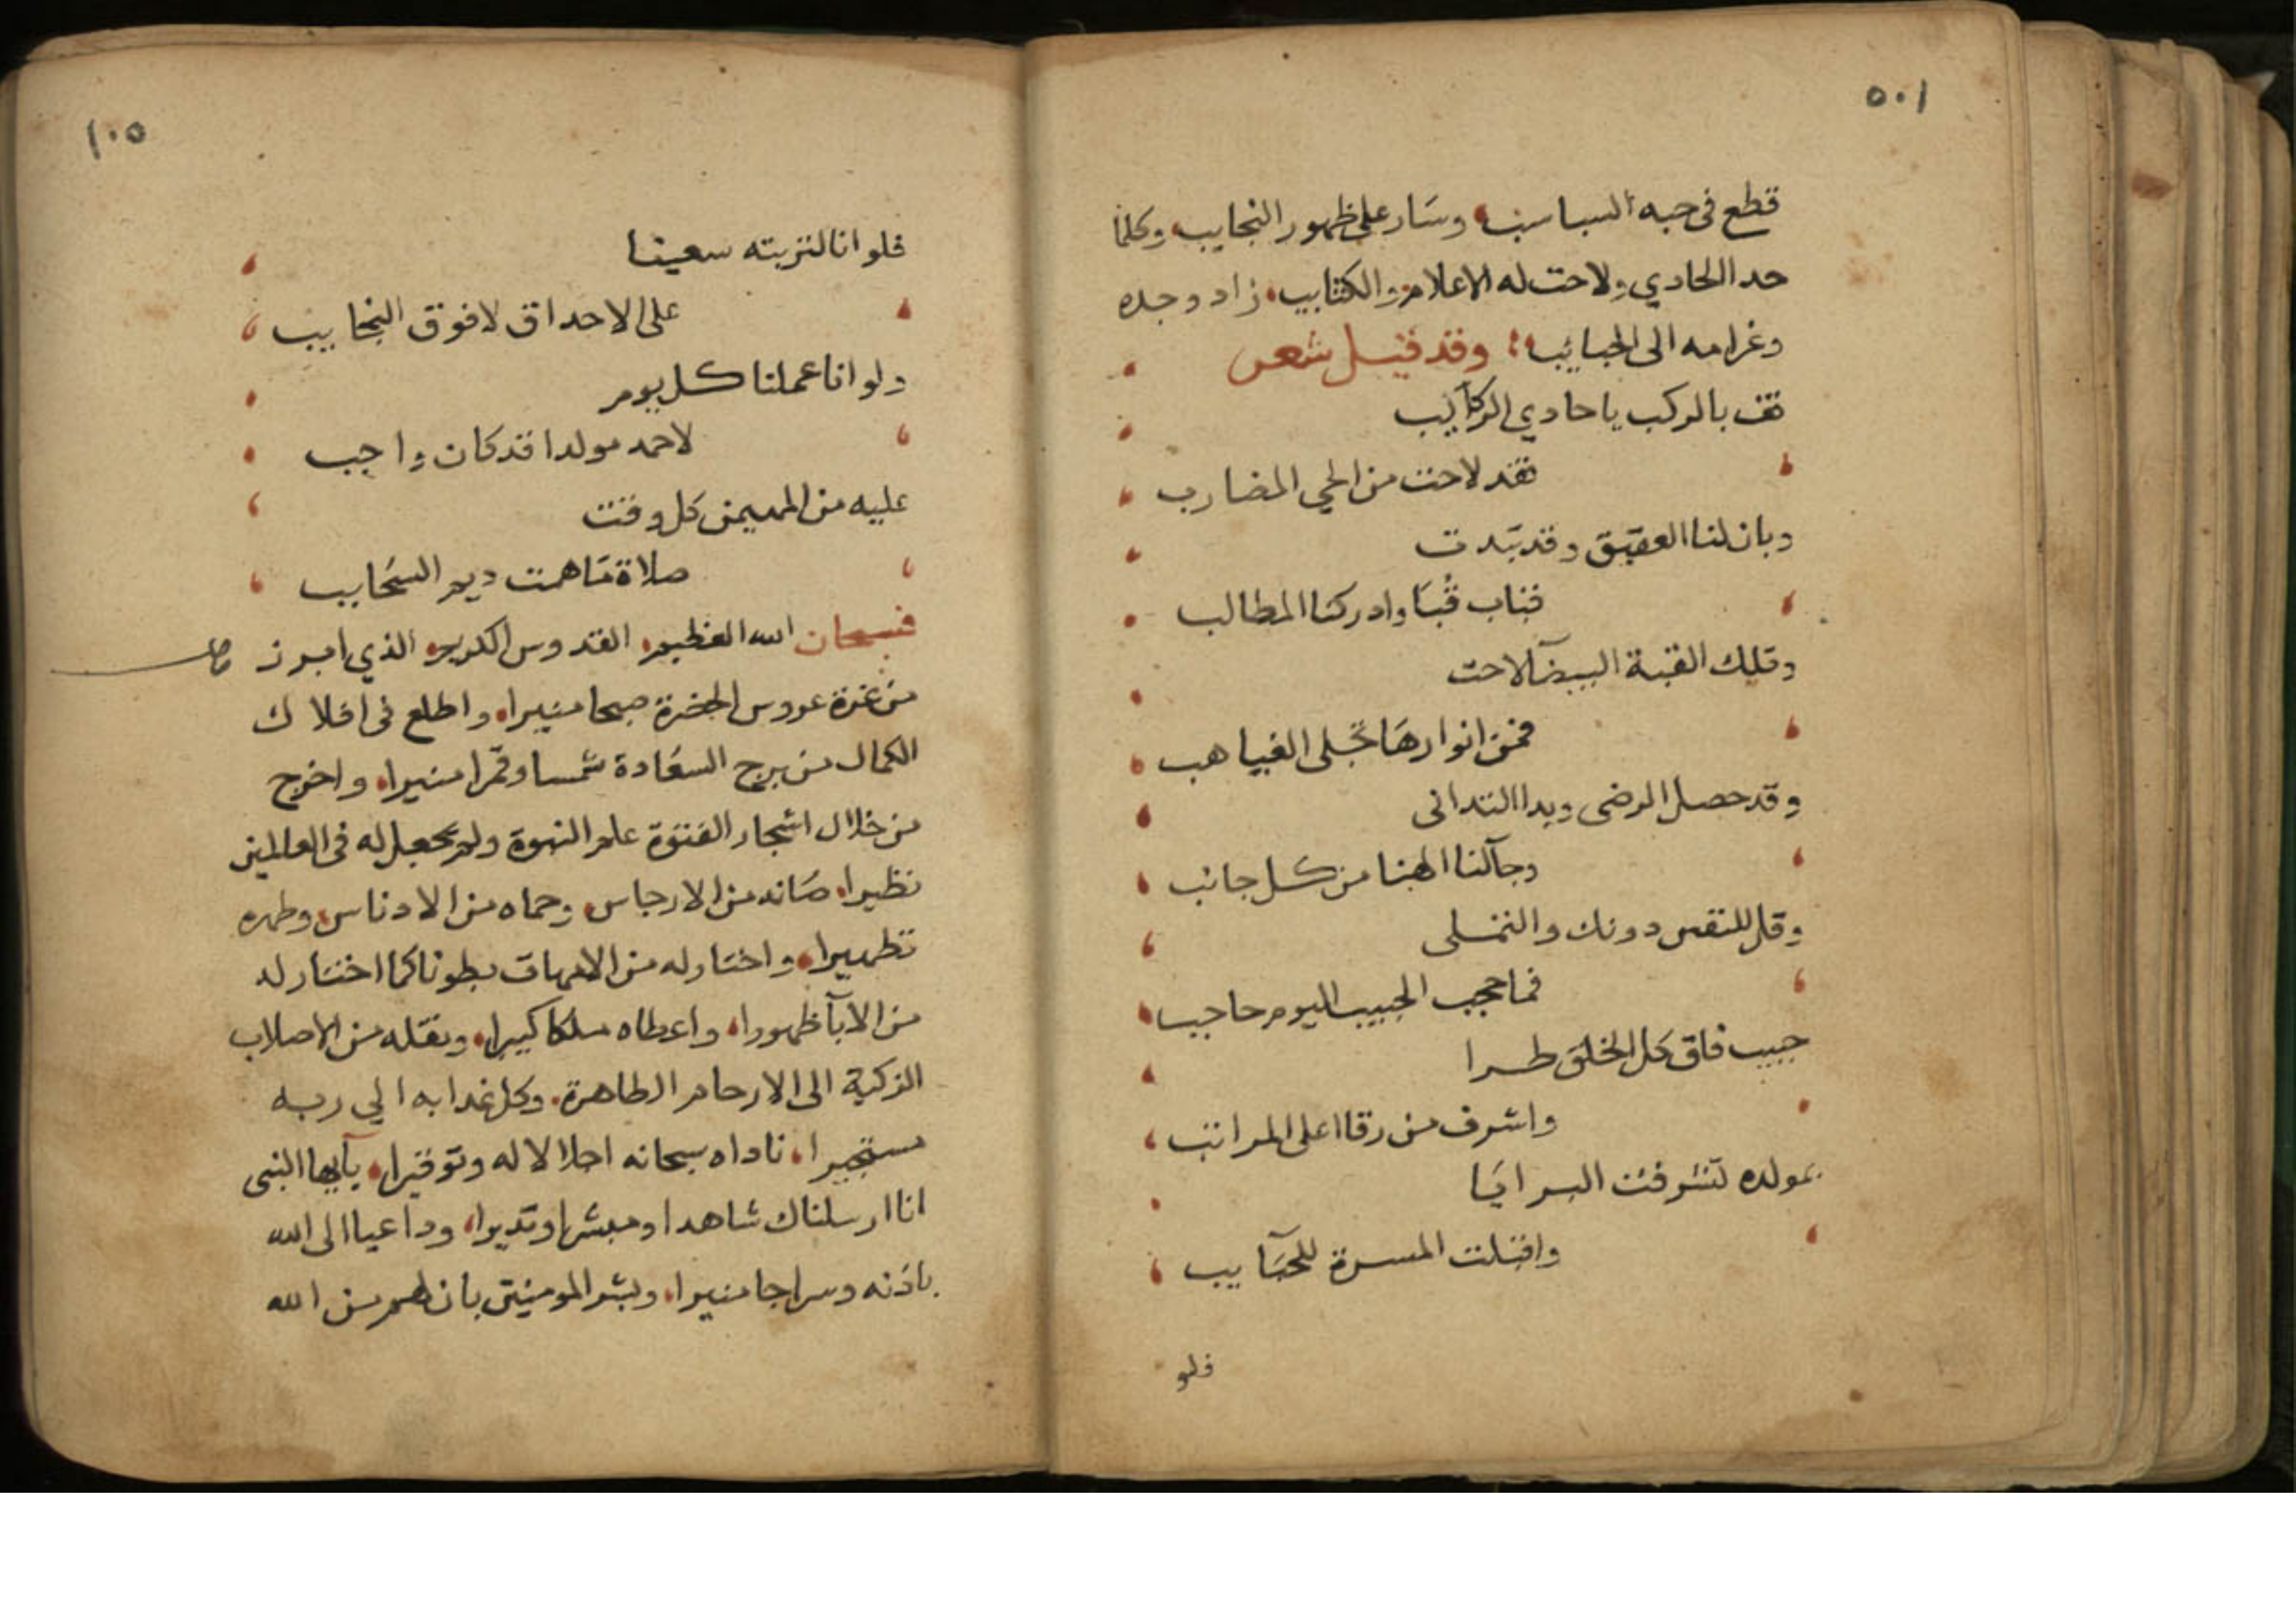 ٥٠١
قطع في حبه السباسب، وسار على ظهور النجايب، وكلما
حدا الحادي، ولاحت له الاعلام والكتايب، زاد وجده
وغرامه الى الحبايب؛ وقد قيل شعر
قف بالركب يا حادي الركايب
فقد لاحت من الحي المضارب
وبان لنا العقيق وقد تبدت
قباب قبا وادركنا المطالب
وتلك القبة البيضآ لاحت
فمن انوارها تجلى الغياهب
وقد حصل الرضى وبدا التدانى
وجآ لنا الهنا من كل جانب
وقل للنفس دونك والتملى
فما حجب الحبيب اليوم حاجب
حبيب فاق كل الخلق طرا
واشرف من رقا اعلى المراتب
بمولده تشرفت البرايا
واقبلت المسرة للحبآيب
فلو
١٠٥
فلو انا لتربته سعينا
على الاحداق لا فوق النجايب
ولو انا عملنا كل يوم
لاحمد مولدا قد كان واجب
عليه من المهيمن كل وقت
صلاة ما همت ديم السحايب
فسبحان الله العظيم، القدوس الكريم، الذي ابرز
من غرة عروس الحضرة صبحا منيرا، واطلع في افلاك
الكمال من برج السعادة شمسا وقمرا منيرا، واخرج
من خلال اشجار الفتوة علم النبوة ولم يجعل له في العالمين
نظيرا، صانه من الارجاس، وحماه من الادناس، وطهره
تطهيرا، واختار له من الامهات بطونا كما اختار له
من الابآ ظهورا، واعطاه ملكا كبيرا، ونقله من الاصلاب
الزكية الى الارحام الطاهرة. وكل غدا به الي ربه
مستجيرا، ناداه سبحانه اجلالا له وتوقيرا، يآيها النبى
انا ارسلناك شاهدا ومبشرا ونذيرا، وداعيا الى الله
باذنه وسراجا منيرا، وبشر المومنين بان لهم من الله